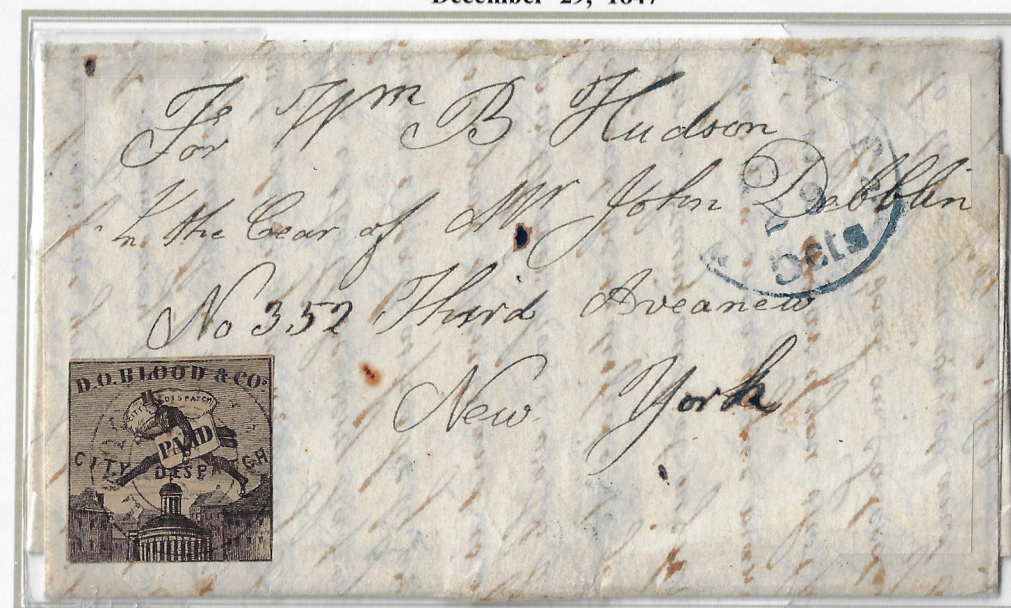 December 29, 1847
For Wm B Hudson
In the Cear of Mr John Debblin
No 352 Third Aveanew
New York
29
5cts
D.O.BLOOD & CO'S
CITY DISPATCH
PAID
CITY DESPATCH